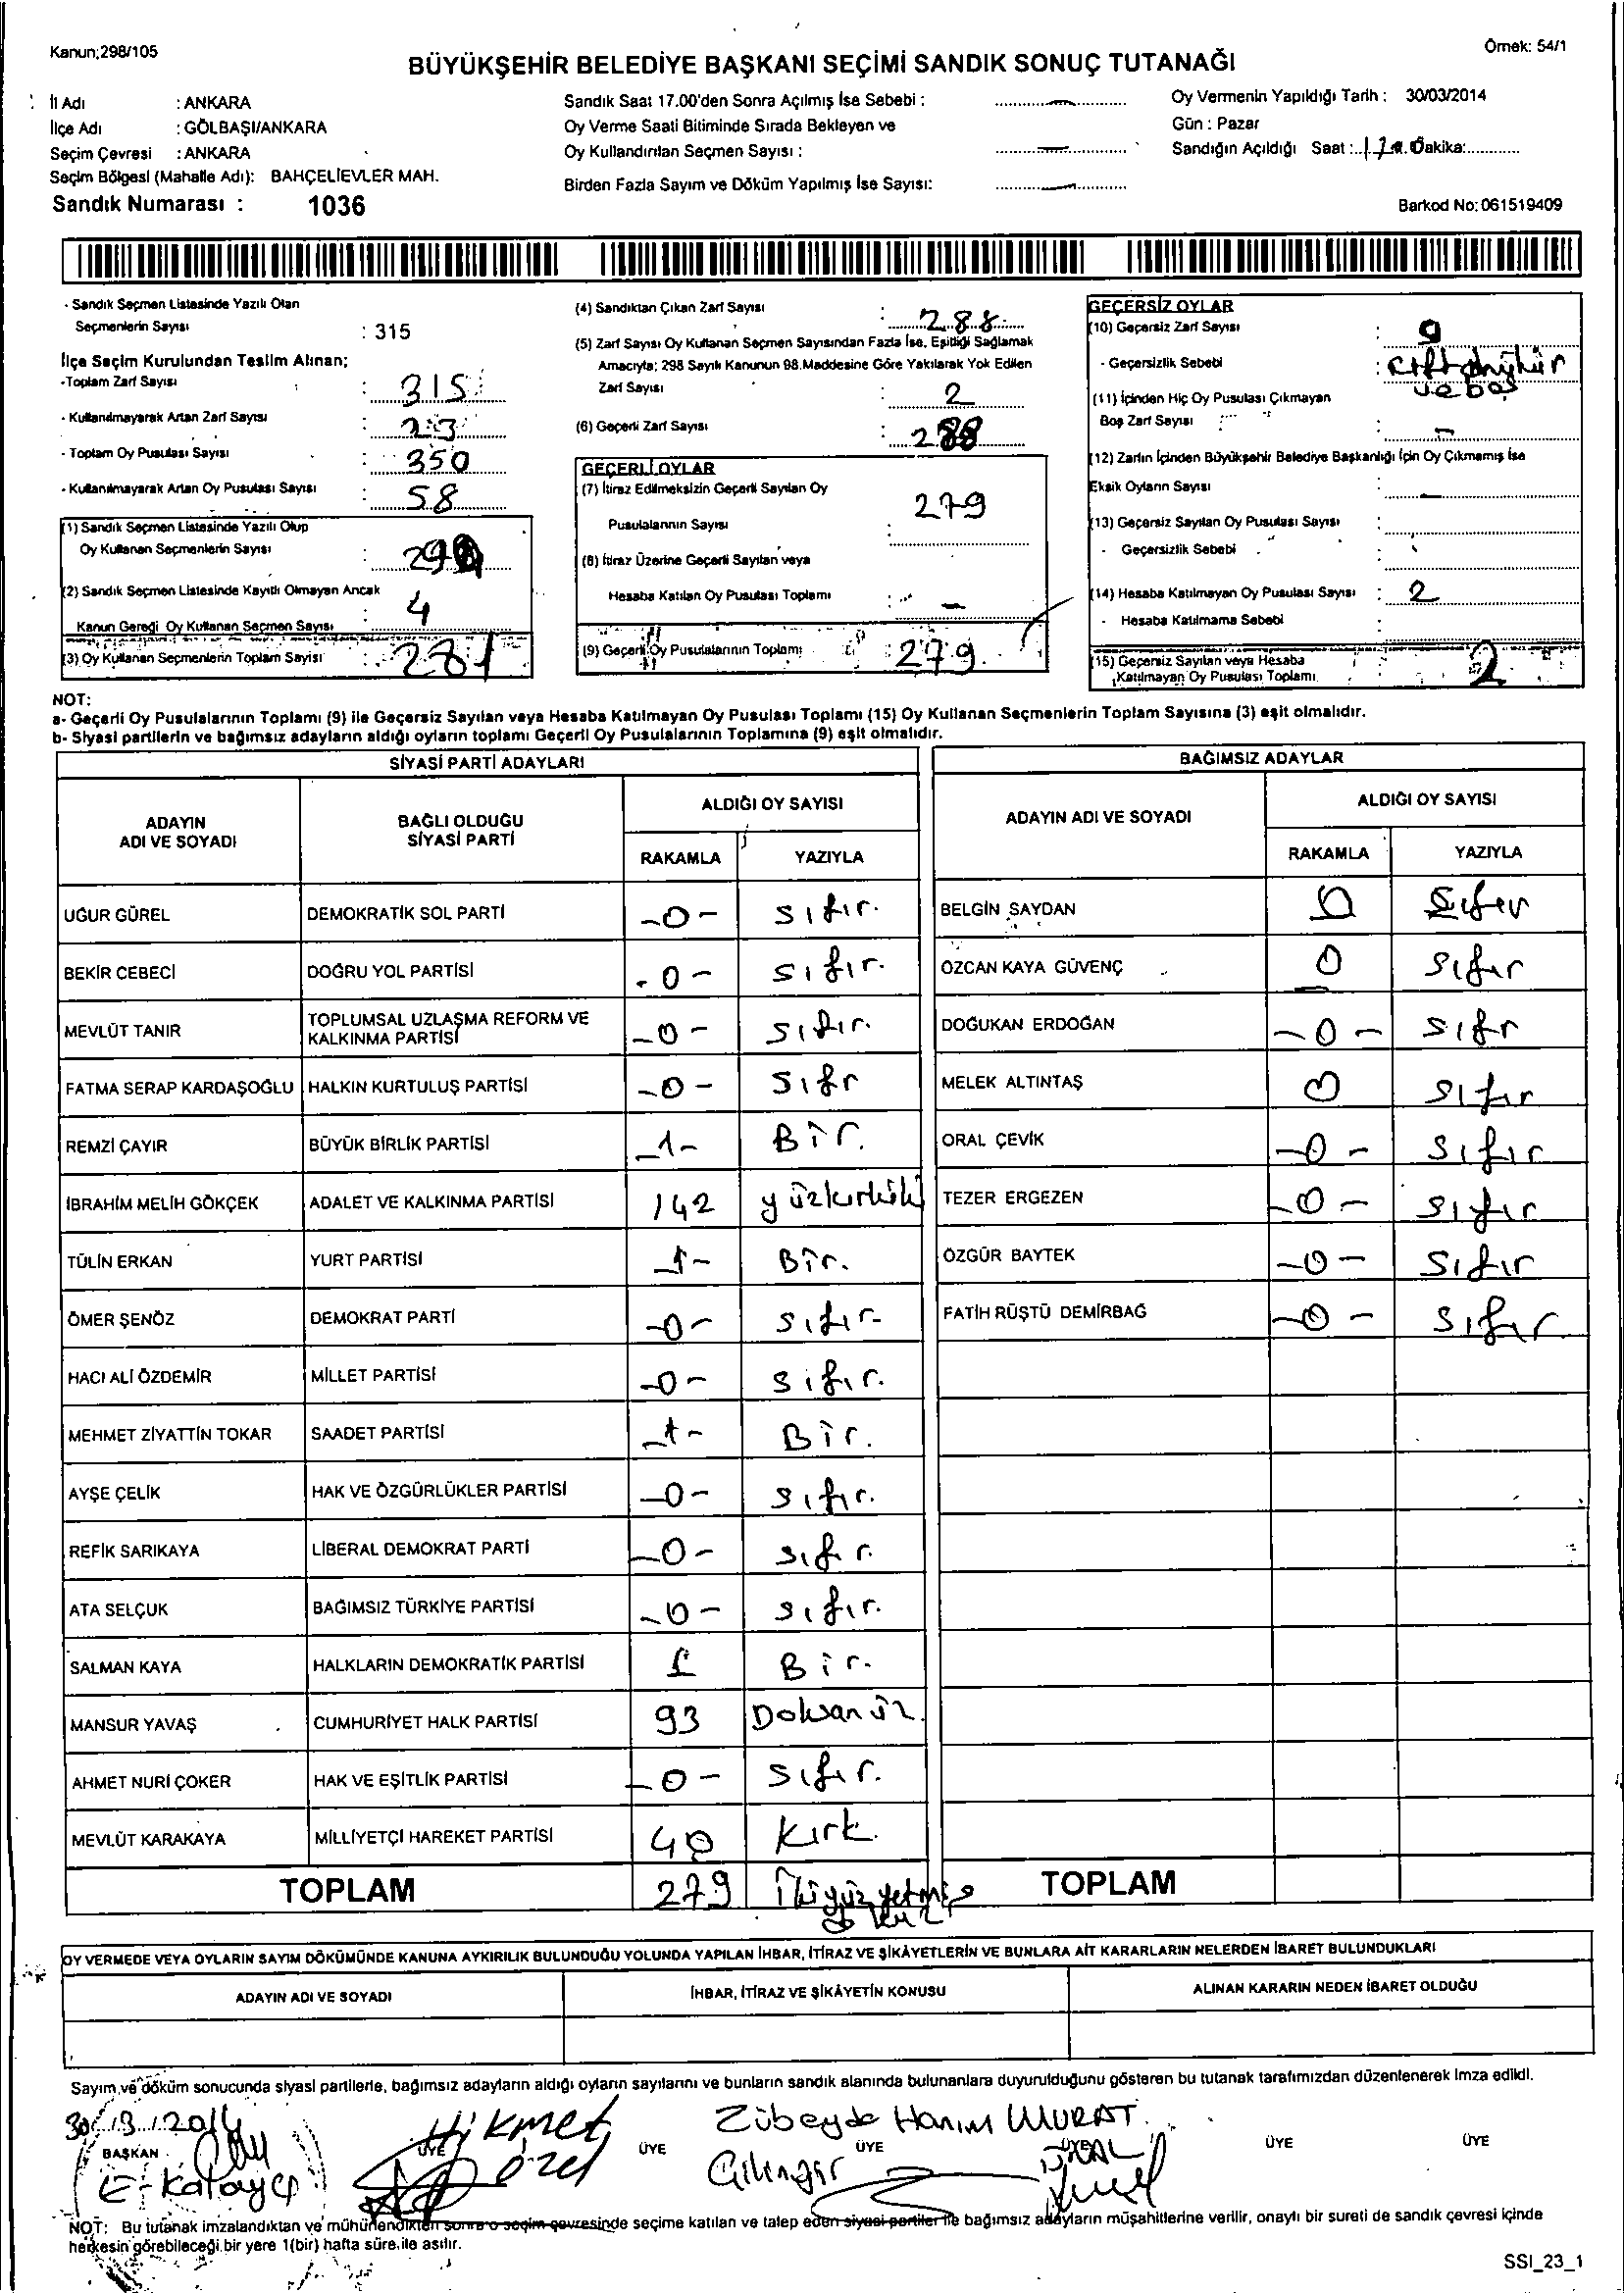 Kanun;298/105
Örnek: 54/1
BÜYÜKŞEHİR BELEDİYE BAŞKANI SEÇİMİ SANDIK SONUÇ TUTANAĞI
İl Adı : ANKARA
İlçe Adı : GÖLBAŞI/ANKARA
Seçim Çevresi : ANKARA
Seçim Bölgesi (Mahalle Adı): BAHÇELİEVLER MAH.
Sandık Numarası : 1036
Sandık Saat 17.00'den Sonra Açılmış İse Sebebi : –
Oy Verme Saati Bitiminde Sırada Bekleyen ve
Oy Kullandırılan Seçmen Sayısı : –
Birden Fazla Sayım ve Döküm Yapılmış İse Sayısı: –
Oy Vermenin Yapıldığı Tarih : 30/03/2014
Gün : Pazar
Sandığın Açıldığı Saat : Dakika:
Barkod No: 061519409
- Sandık Seçmen Listesinde Yazılı Olan
Seçmenlerin Sayısı : 315
İlçe Seçim Kurulundan Teslim Alınan;
-Toplam Zarf Sayısı : 315
- Kullanılmayarak Artan Zarf Sayısı : 23
- Toplam Oy Pusulası Sayısı : 350
- Kullanılmayarak Artan Oy Pusulası Sayısı : 58
(1) Sandık Seçmen Listesinde Yazılı Olup
Oy Kullanan Seçmenlerin Sayısı :
(2) Sandık Seçmen Listesinde Kayıtlı Olmayan Ancak
Kanun Gereği Oy Kullanan Seçmen Sayısı : 4
(3) Oy Kullanan Seçmenlerin Toplam Sayısı : 281
(4) Sandıktan Çıkan Zarf Sayısı : 288
(5) Zarf Sayısı Oy Kullanan Seçmen Sayısından Fazla İse, Eşitliği Sağlamak
Amacıyla; 298 Sayılı Kanunun 98.Maddesine Göre Yakılarak Yok Edilen
Zarf Sayısı : 2
(6) Geçerli Zarf Sayısı : 288
GEÇERLİ OYLAR
(7) İtiraz Edilmeksizin Geçerli Sayılan Oy
Pusulalarının Sayısı : 279
(8) İtiraz Üzerine Geçerli Sayılan veya
Hesaba Katılan Oy Pusulası Toplamı : –
(9) Geçerli Oy Pusulalarının Toplamı : 279
GEÇERSİZ OYLAR
(10) Geçersiz Zarf Sayısı : 9
- Geçersizlik Sebebi : çift mühür
ve boş
(11) İçinden Hiç Oy Pusulası Çıkmayan
Boş Zarf Sayısı : –
(12) Zarfın İçinden Büyükşehir Belediye Başkanlığı İçin Oy Çıkmamış İse
Eksik Oyların Sayısı : –
(13) Geçersiz Sayılan Oy Pusulası Sayısı :
- Geçersizlik Sebebi :
(14) Hesaba Katılmayan Oy Pusulası Sayısı : 2
- Hesaba Katılmama Sebebi :
(15) Geçersiz Sayılan veya Hesaba
Katılmayan Oy Pusulası Toplamı : 2
NOT:
a- Geçerli Oy Pusulalarının Toplamı (9) ile Geçersiz Sayılan veya Hesaba Katılmayan Oy Pusulası Toplamı (15) Oy Kullanan Seçmenlerin Toplam Sayısına (3) eşit olmalıdır.
b- Siyasi partilerin ve bağımsız adayların aldığı oyların toplamı Geçerli Oy Pusulalarının Toplamına (9) eşit olmalıdır.
SİYASİ PARTİ ADAYLARI
ADAYIN ADI VE SOYADI
BAĞLI OLDUĞU SİYASİ PARTİ
ALDIĞI OY SAYISI
RAKAMLA YAZIYLA
UĞUR GÜREL DEMOKRATİK SOL PARTİ -0- sıfır.
BEKİR CEBECİ DOĞRU YOL PARTİSİ -0- sıfır.
MEVLÜT TANIR TOPLUMSAL UZLAŞMA REFORM VE KALKINMA PARTİSİ -0- sıfır.
FATMA SERAP KARDAŞOĞLU HALKIN KURTULUŞ PARTİSİ -0- sıfr
REMZİ ÇAYIR BÜYÜK BİRLİK PARTİSİ -1- Bir.
İBRAHİM MELİH GÖKÇEK ADALET VE KALKINMA PARTİSİ 142 yüzkırkiki
TÜLİN ERKAN YURT PARTİSİ -1- Bir.
ÖMER ŞENÖZ DEMOKRAT PARTİ -0- sıfır-
HACI ALİ ÖZDEMİR MİLLET PARTİSİ -0- sıfır.
MEHMET ZİYATTİN TOKAR SAADET PARTİSİ -1- Bir.
AYŞE ÇELİK HAK VE ÖZGÜRLÜKLER PARTİSİ -0- sıfır.
REFİK SARIKAYA LİBERAL DEMOKRAT PARTİ -0- sıfır.
ATA SELÇUK BAĞIMSIZ TÜRKİYE PARTİSİ -0- sıfır.
SALMAN KAYA HALKLARIN DEMOKRATİK PARTİSİ 1 Bir.
MANSUR YAVAŞ CUMHURİYET HALK PARTİSİ 93 Doksanüç
AHMET NURİ ÇOKER HAK VE EŞİTLİK PARTİSİ -0- sıfır.
MEVLÜT KARAKAYA MİLLİYETÇİ HAREKET PARTİSİ 40 kırk.
TOPLAM 279 İkiyüzyetmiş
dokuz
BAĞIMSIZ ADAYLAR
ADAYIN ADI VE SOYADI
ALDIĞI OY SAYISI
RAKAMLA YAZIYLA
BELGİN SAYDAN 0 Sıfır
ÖZCAN KAYA GÜVENÇ 0 sıfır
DOĞUKAN ERDOĞAN -0- sıfr
MELEK ALTINTAŞ 0 sıfır
ORAL ÇEVİK -0- sıfır
TEZER ERGEZEN -0- sıfır
ÖZGÜR BAYTEK -0- sıfır
FATİH RÜŞTÜ DEMİRBAĞ -0- sıfır
TOPLAM
OY VERMEDE VEYA OYLARIN SAYIM DÖKÜMÜNDE KANUNA AYKIRILIK BULUNDUĞU YOLUNDA YAPILAN İHBAR, İTİRAZ VE ŞİKÂYETLERİN VE BUNLARA AİT KARARLARIN NELERDEN İBARET BULUNDUKLARI
ADAYIN ADI VE SOYADI İHBAR, İTİRAZ VE ŞİKÂYETİN KONUSU ALINAN KARARIN NEDEN İBARET OLDUĞU
Sayım ve döküm sonucunda siyasi partilerle, bağımsız adayların aldığı oyların sayılarını ve bunların sandık alanında bulunanlara duyurulduğunu gösteren bu tutanak tarafımızdan düzenlenerek imza edildi.
30/3/2014 Hikmet Zübeyde Hanım MURAT
BAŞKAN ÜYE ÜYE ÜYE ÜYE ÜYE
özel ÜNAL
NOT: Bu tutanak imzalandıktan ve mühürlendikten sonra o seçim çevresinde seçime katılan ve talep eden siyasi partiler ile bağımsız adayların müşahitlerine verilir, onaylı bir sureti de sandık çevresi içinde
herkesin görebileceği bir yere 1(bir) hafta süre ile asılır.
SSI_23_1